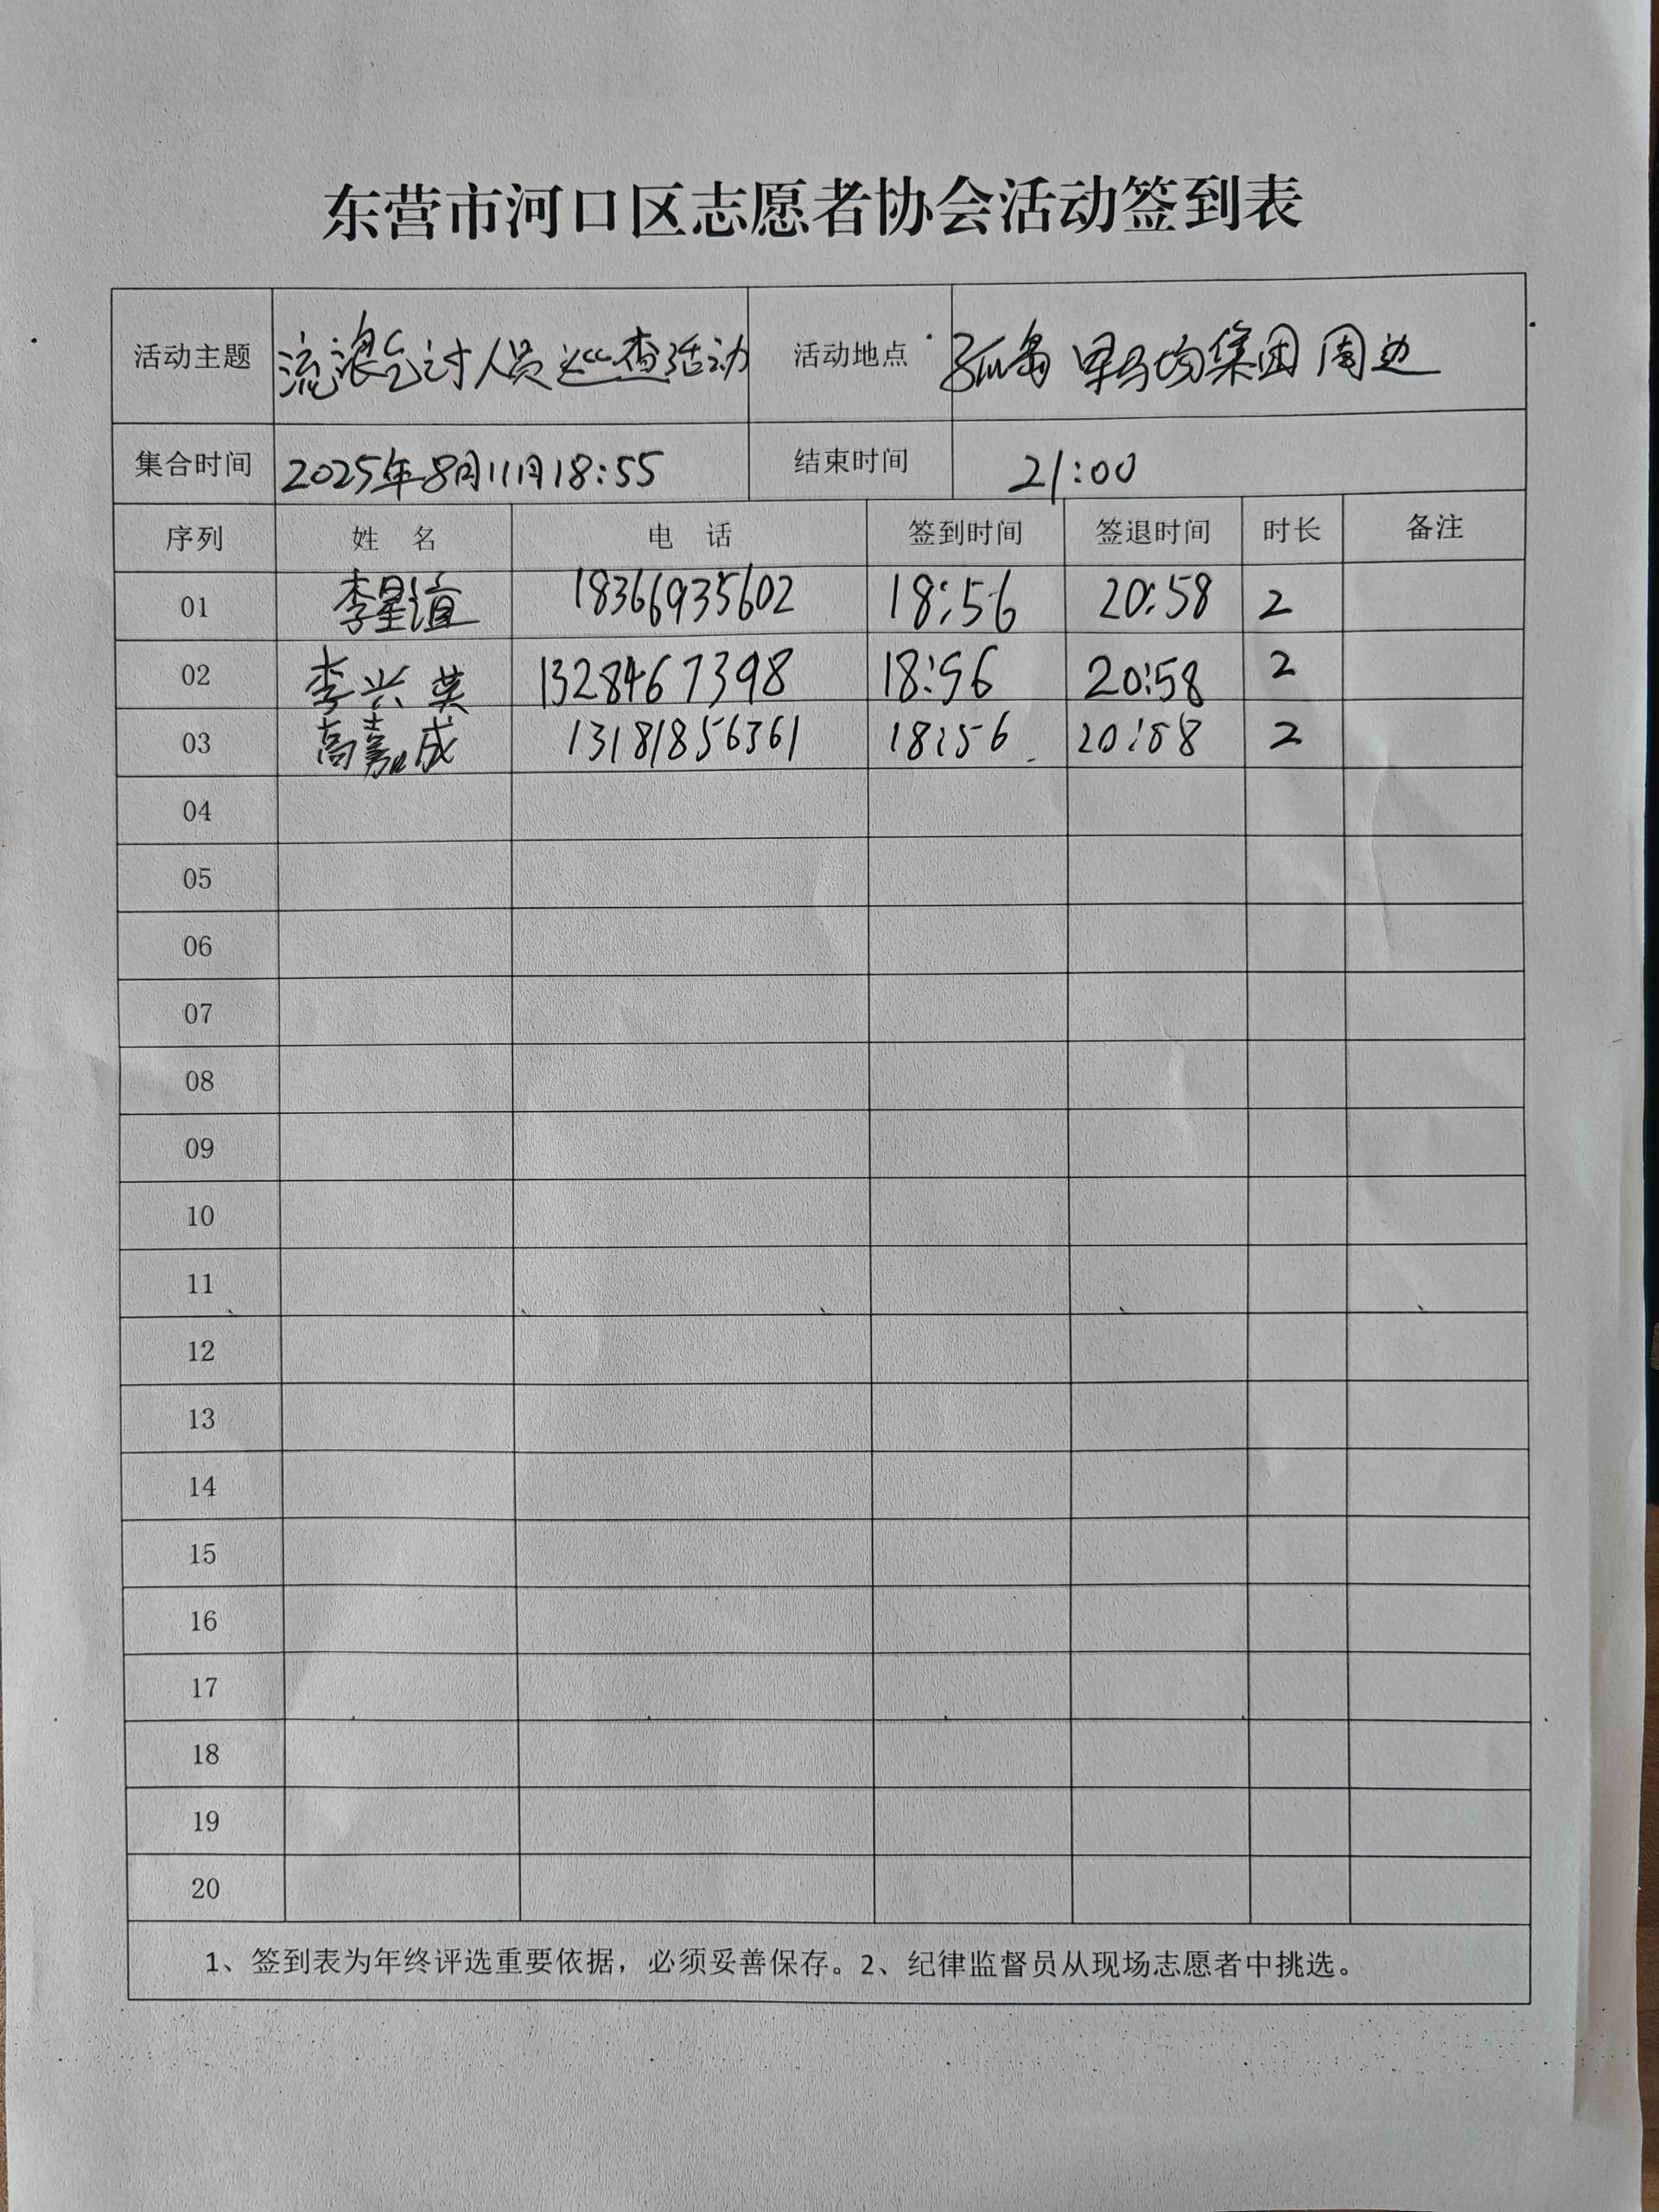 东营市河口区志愿者协会活动签到表
活动主题 流浪乞讨人员巡查活动 活动地点 孤岛 周边
集合时间 2025年8月11日18:55 结束时间 21:00
序列 姓 名 电 话 签到时间 签退时间 时长 备注
01 李星谊 18366935602 18:56 20:58 2
02 李兴英 1328467398 18:56 20:58 2
03 高嘉成 13181856361 18:56 20:58 2
04
05
06
07
08
09
10
11
12
13
14
15
16
17
18
19
20
1、签到表为年终评选重要依据，必须妥善保存。2、纪律监督员从现场志愿者中挑选。